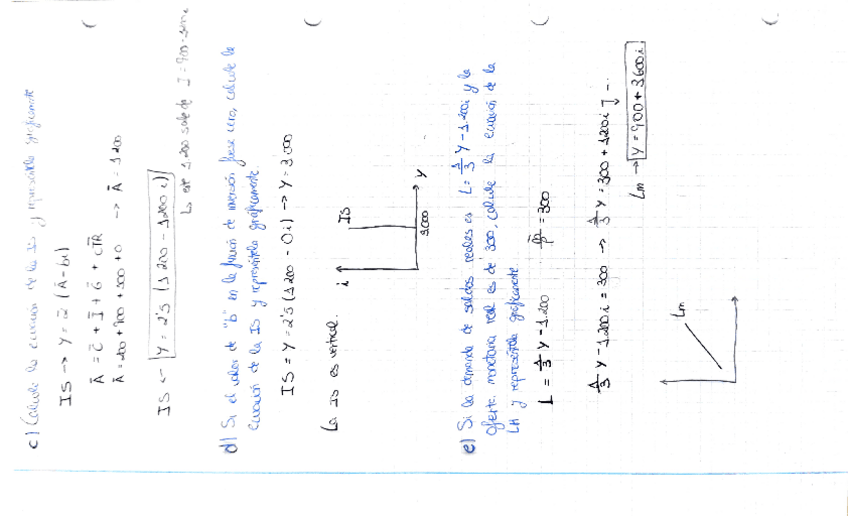 c) Calcule la ecuación de la IS y represéntela gráficamente
IS → Y = α (Ā - bi)
Ā = C̄ + Ī + Ḡ + cT̄R̄
Ā = 200 + 900 + 100 + 0 → Ā = 1200
IS ← Y = 2'5 (1200 - 1200 i)
1200 sale de I = 900 -
d) Si el valor de "b" en la función de inversión fuese cero, calcule la
ecuación de la IS y represéntela gráficamente.
IS = Y = 2'5 (1200 - 0i) → Y = 3.000
La IS es vertical.
i
IS
Y
3.000
e) Si la demanda de saldos reales es L = 1/3 Y - 1.200i y la
oferta monetaria real es de 300, calcule la ecuación de la
LM y represéntela gráficamente.
L = 1/3 Y - 1.200 M̄/P = 300
1/3 Y - 1.200i = 300 → 1/3 Y = 300 + 1200i
Lm → Y = 900 + 3600i
Lm